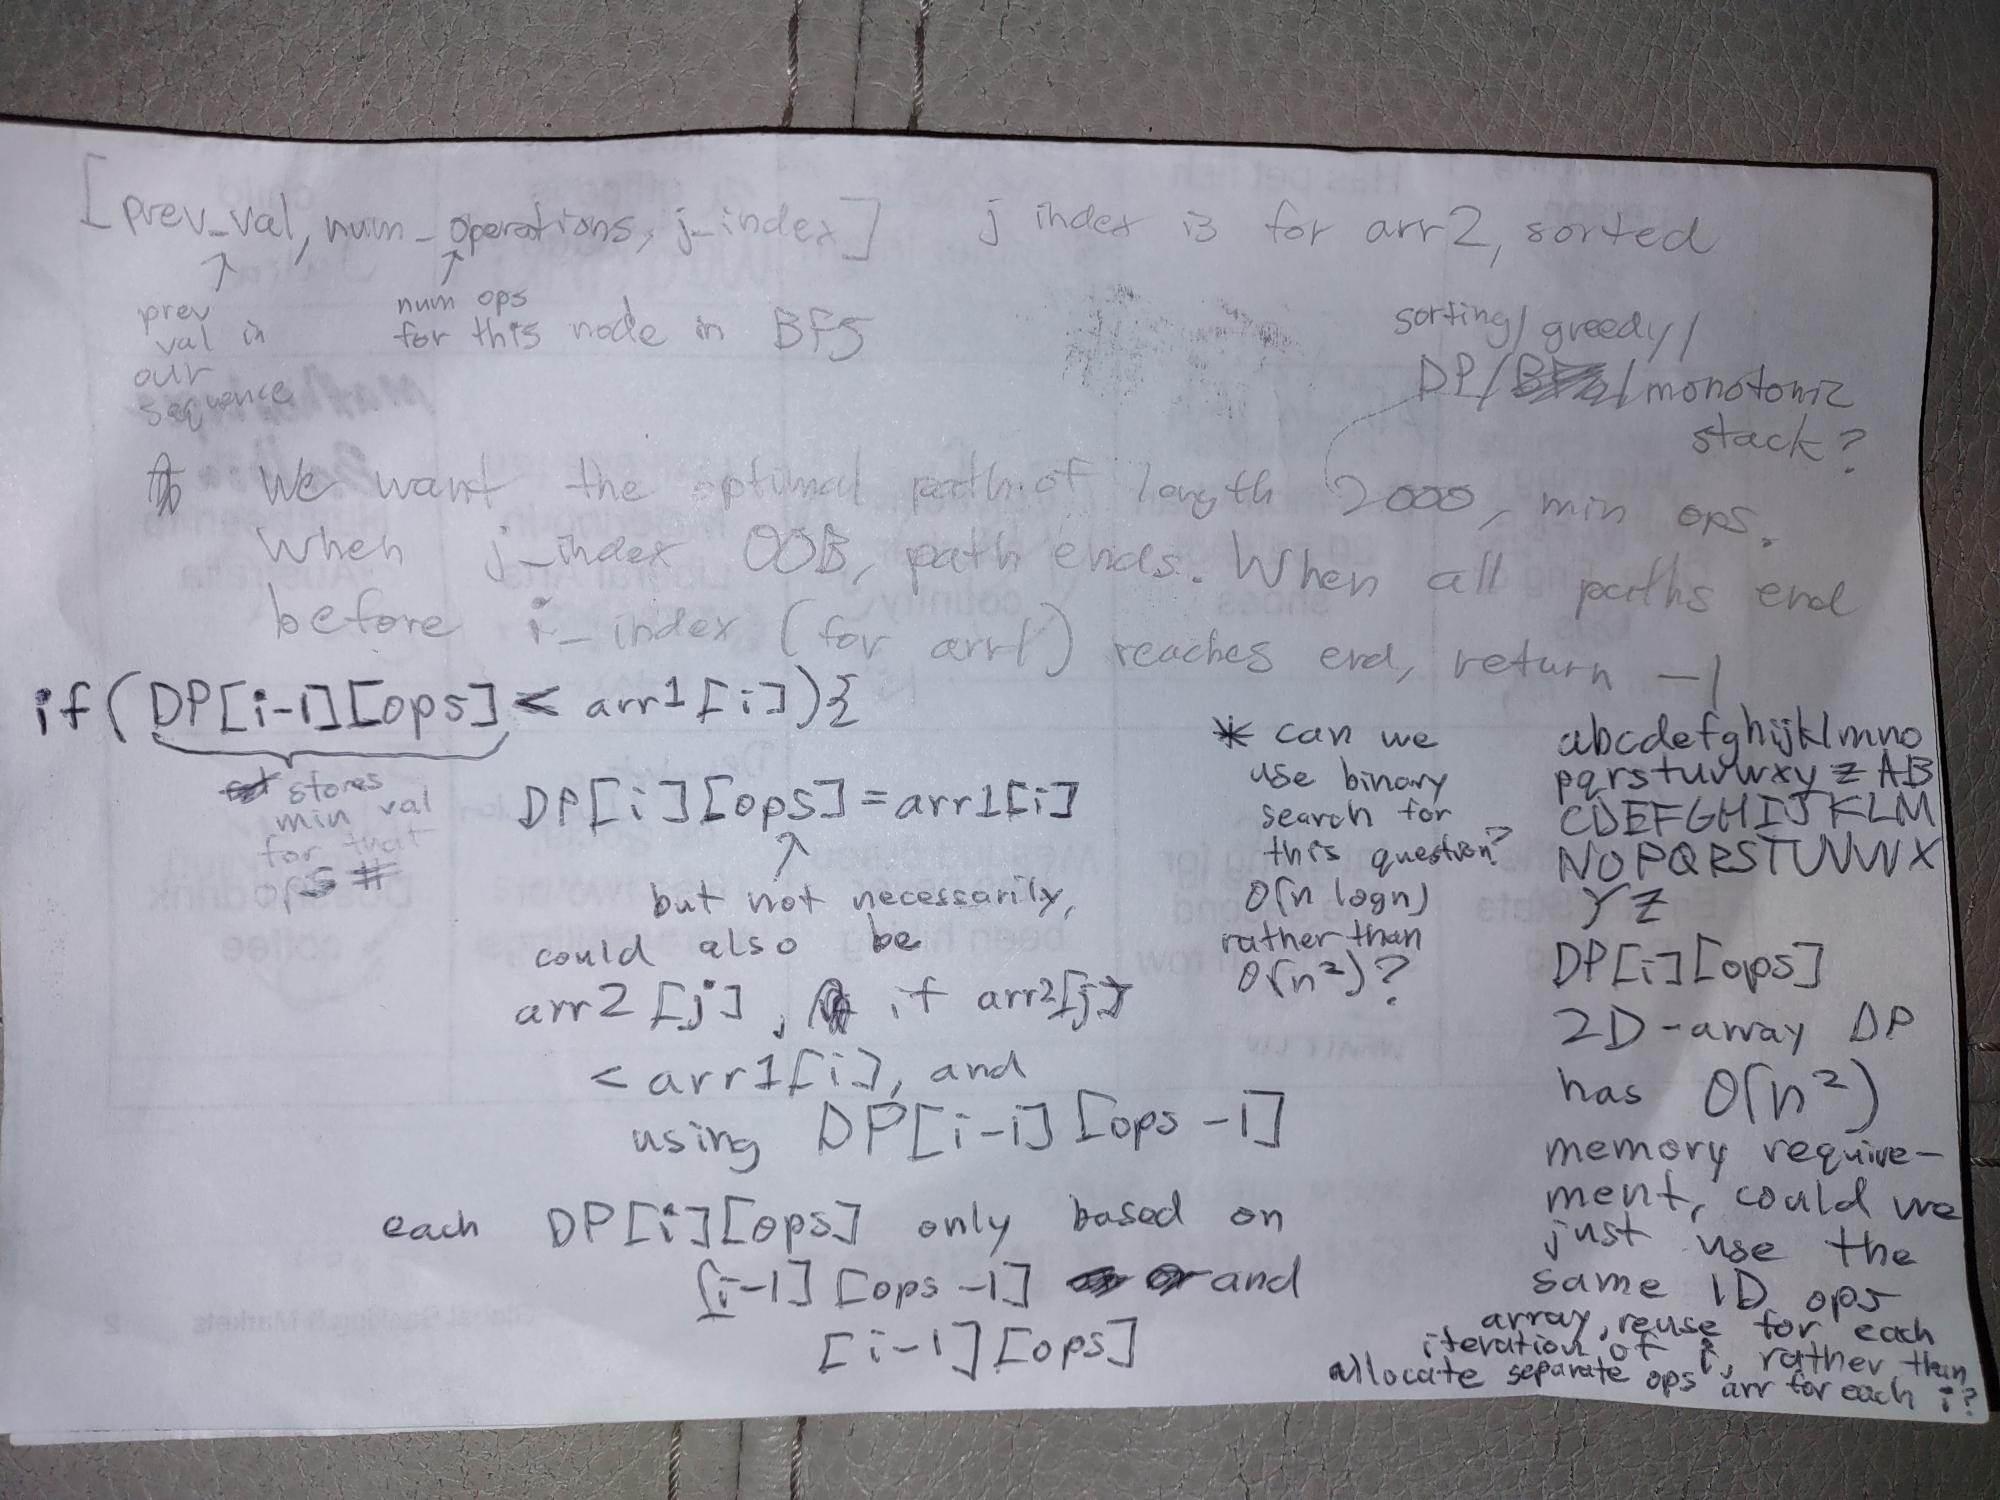 [prev_val, num_operations, j-index] j index is for arr2, sorted
↑ ↑
prev
val in
our
sequence
num ops
for this node in BFS
sorting/greedy/
DP/monotonic
stack?
We want the optimal path of length 2000, min ops.
When j-index OOB, path ends. When all paths end
before i-index (for arr1) reaches end, return -1
if(DP[i-1][ops] < arr1[i]){
stores
min val
for that
ops #
DP[i][ops] = arr1[i]
↑
but not necessarily,
could also be
arr2[j], if arr2[j]
< arr1[i], and
using DP[i-1][ops-1]
each DP[i][ops] only based on
[i-1][ops-1] and
[i-1][ops]
* can we
use binary
search for
this question?
O(n logn)
rather than
O(n²)?
abcdefghijklmno
pqrstuvwxyzAB
CDEFGHIJKLM
NOPQRSTUVWX
YZ
DP[i][ops]
2D-array DP
has O(n²)
memory require-
ment, could we
just use the
same 1D ops
array, reuse for each
iteration of i, rather than
allocate separate ops arr for each i?